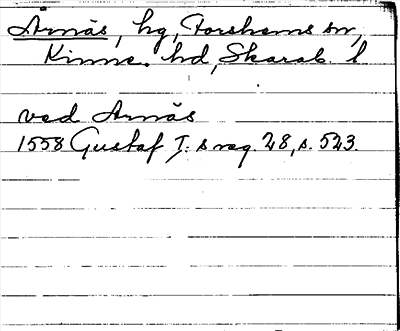 Årnäs, hg, Forshems sn,
Kinne. hd, Skarab. l
ved Arnäs
1558 Gustaf I:s reg. 28, s. 523.